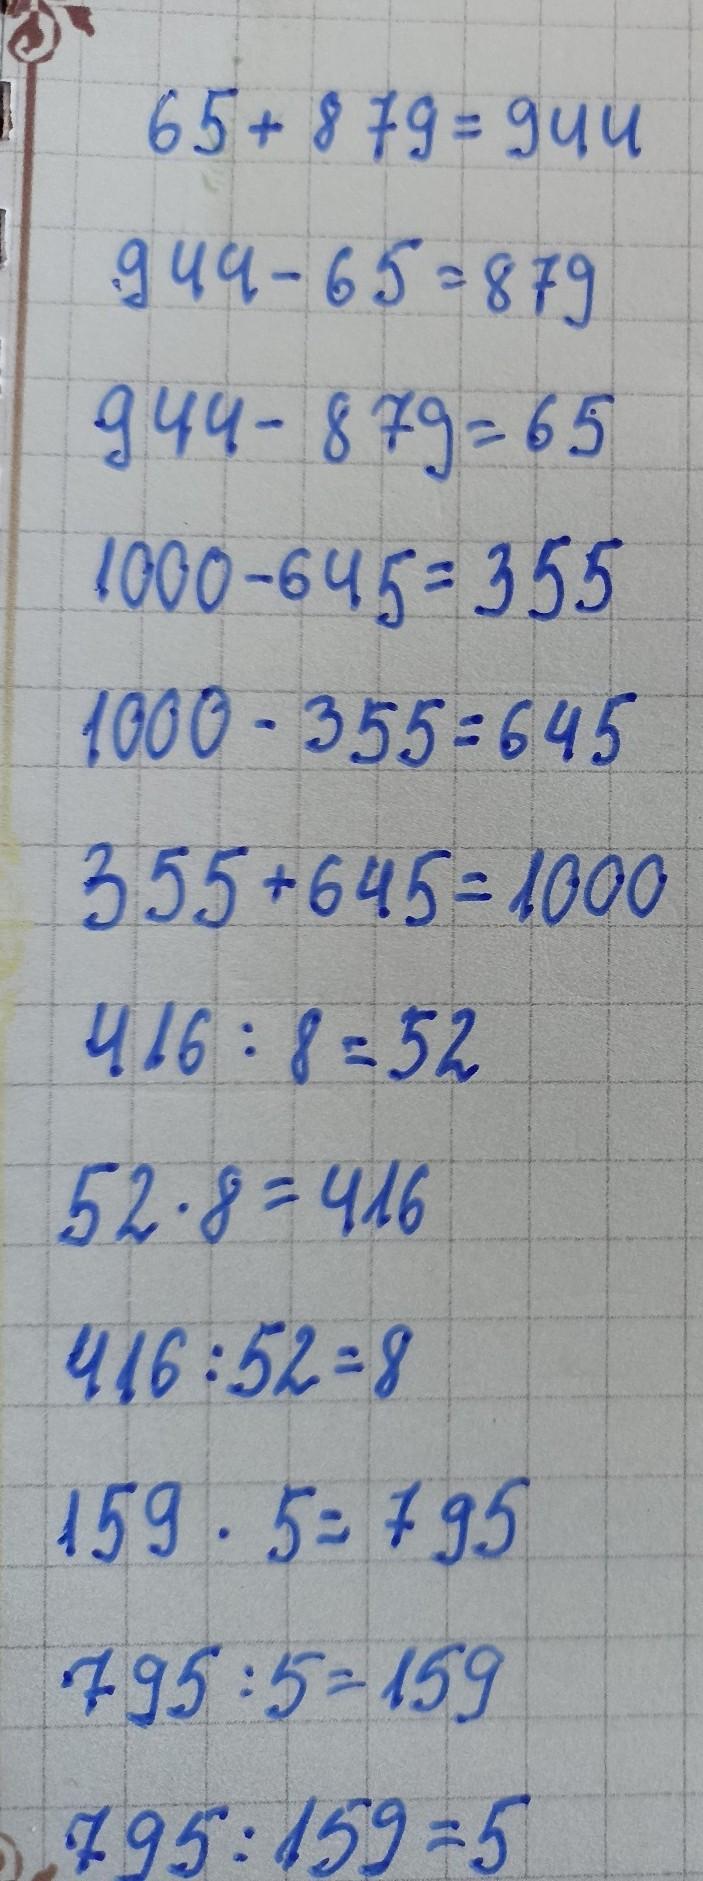 65 + 879 = 944
944 - 65 = 879
944 - 879 = 65
1000 - 645 = 355
1000 - 355 = 645
355 + 645 = 1000
416 : 8 = 52
52 · 8 = 416
416 : 52 = 8
159 · 5 = 795
795 : 5 = 159
795 : 159 = 5